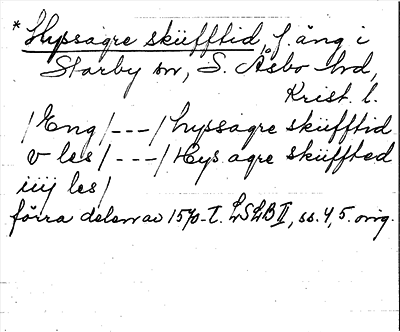 * Hyssagre skiifftid, f. äng i
Starby sn, S. Åsbo hd,
Krist. l.
/Eng/---/hyssagre skiifftid
v les/---/Hys agre skiiffted
iiij les/
förra delen av 1570-t. LSLB II, ss. 4, 5. orig.